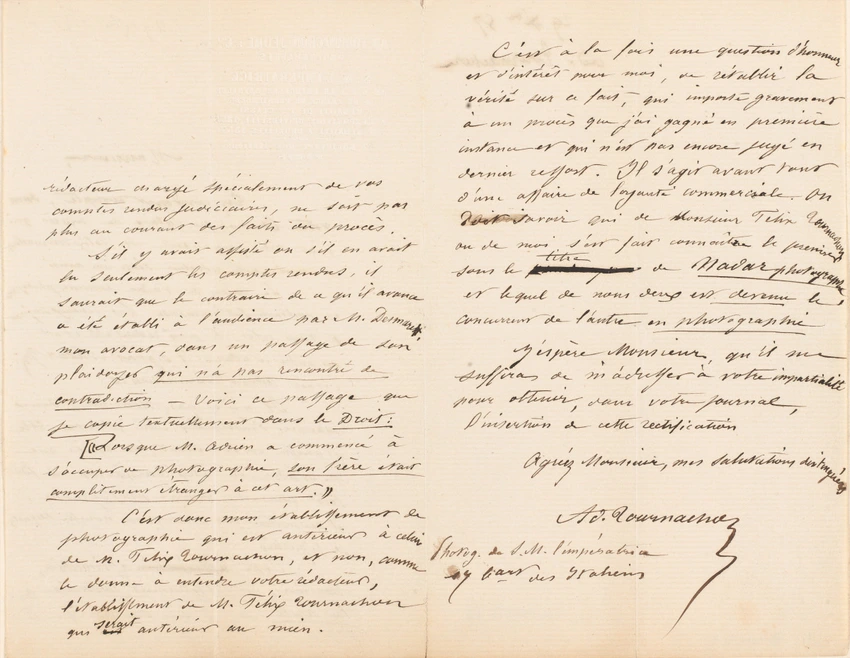 rédacteur chargé spécialement de vos
comptes rendus judiciaires, ne soit pas
plus au courant des faits du procès.
S'il y avait assisté ou s'il en avait
lu seulement les comptes rendus, il
saurait que le contraire de ce qu'il avance
a été établi à l'audience par M. Desmarest,
mon avocat, dans un passage de son
plaidoyer qui n'a pas rencontré de
contradiction – Voici ce passage que
je copie textuellement dans le Droit :
«Lorsque M. Adrien a commencé à
s'occuper de photographie, son frère était
complètement étranger à cet art.»
C'est donc mon établissement de
photographie qui est antérieur à celui
de M. Félix Tournachon, et non, comme
le donne à entendre votre rédacteur,
l'établissement de M. Félix Tournachon
qui serait antérieur au mien.
C'est à la fois une question d'honneur
et d'intérêt pour moi, de rétablir la
vérité sur ce fait, qui importe gravement
à un procès que j'ai gagné en première
instance et qui n'est pas encore jugé en
dernier ressort. Il s'agit avant tout
d'une affaire de loyauté commerciale. On
doit savoir qui de Monsieur Félix Tournachon
ou de moi s'est fait connaître le premier
sous le titre de Nadar photographe,
et lequel de nous deux est devenu le
concurrent de l'autre en photographie
J'espère Monsieur, qu'il me
suffira de m'adresser à votre impartialité
pour obtenir, dans votre journal,
l'insertion de cette rectification
Agréez Monsieur, mes salutations distinguées
Ad. Tournachon
Photog. de S. M. l'impératrice
17 b.art des Italiens